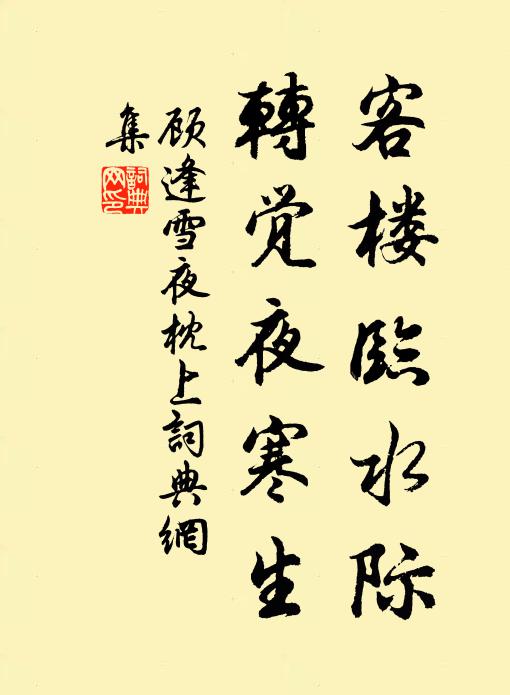 客楼臨水际
轉觉夜寒生
顾逢雪夜枕上詞典網
集
詞典
网印